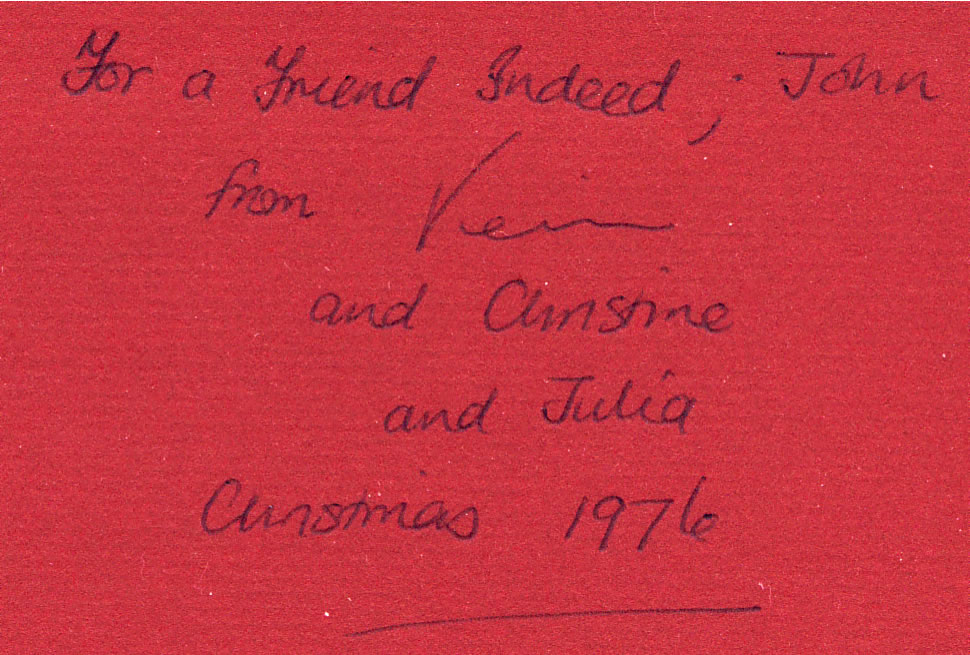 For a Friend Indeed ; John
from
and Christine
and Julia
Christmas 1976